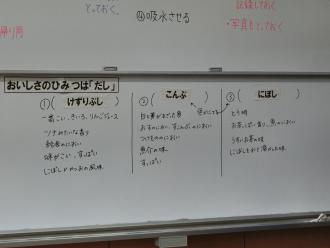 とっておく
④吸水させる
記録しておく
・写真もとっておく
帰り用
おいしさのひみつは「だし」
① けずりぶし
一番こい、きいろ、りんごジュース
ツナみたいな香り
給食のにおい
味がこい、すっぱい
にぼしとかつおの風味
② こんぶ
おすのにおい、すこんぶのにおい
つけもののにおい
魚介の味
すっぱい
③ にぼし
とう明
お茶っぽい香り、魚のにおい
うすいお茶の味